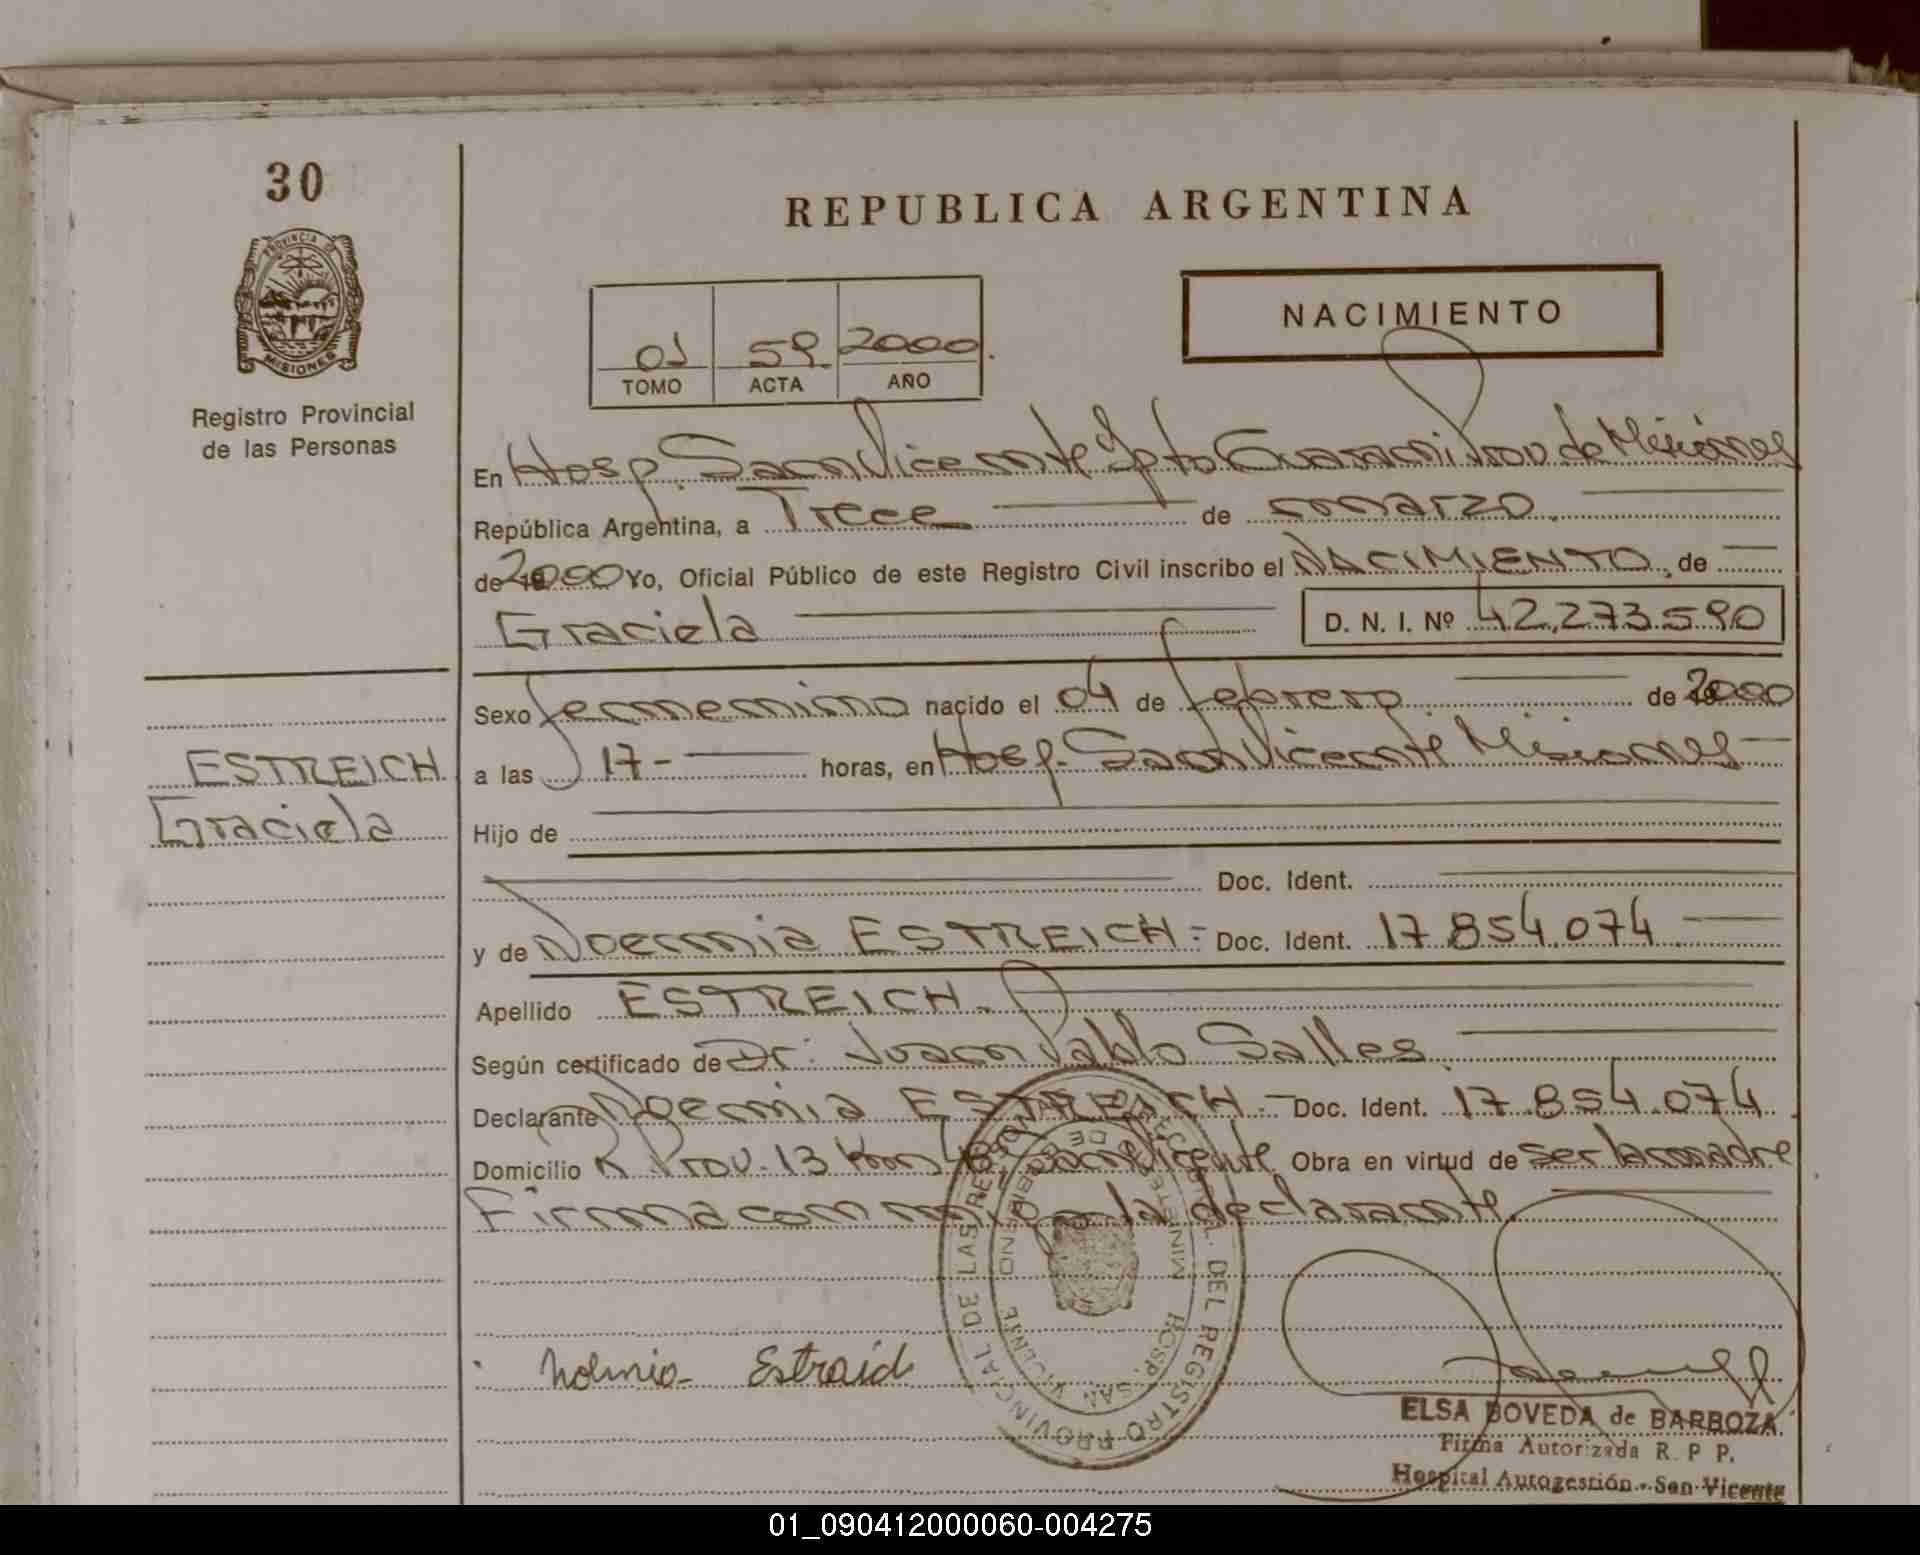 30
PROVINCIA DE
MISIONES
Registro Provincial
de las Personas
REPUBLICA ARGENTINA
01 59 2000.
TOMO ACTA AÑO
NACIMIENTO
En Hosp. San Vicente Dpto Guarani Prov de Misiones
República Argentina, a Trece de marzo.
de 2000 Yo, Oficial Público de este Registro Civil inscribo el NACIMIENTO, de
Graciela D. N. I. Nº 42.273.590
Sexo femenino nacido el 04 de febrero de 2000
a las 17- horas, en Hosp. San Vicente Misiones
Hijo de
Doc. Ident.
y de Noemia ESTREICH.= Doc. Ident. 17.854.074
Apellido ESTREICH.
Según certificado de Dr: Juan Pablo Salles.
Declarante Noemia ESTREICH.- Doc. Ident. 17.854.074.
Domicilio R. Prov. 13 Km San Vicente. Obra en virtud de ser la madre
Firma conmigo la declarante.
ESTREICH
Graciela
Nolmia Estraid
DEL REGISTRO PROVINCIAL DE LAS PERSONAS
HOSP. SAN VICENTE
ELSA BOVEDA de BARBOZA
Firma Autorizada R. P P.
Hospital Autogestión - San Vicente
01_090412000060-004275